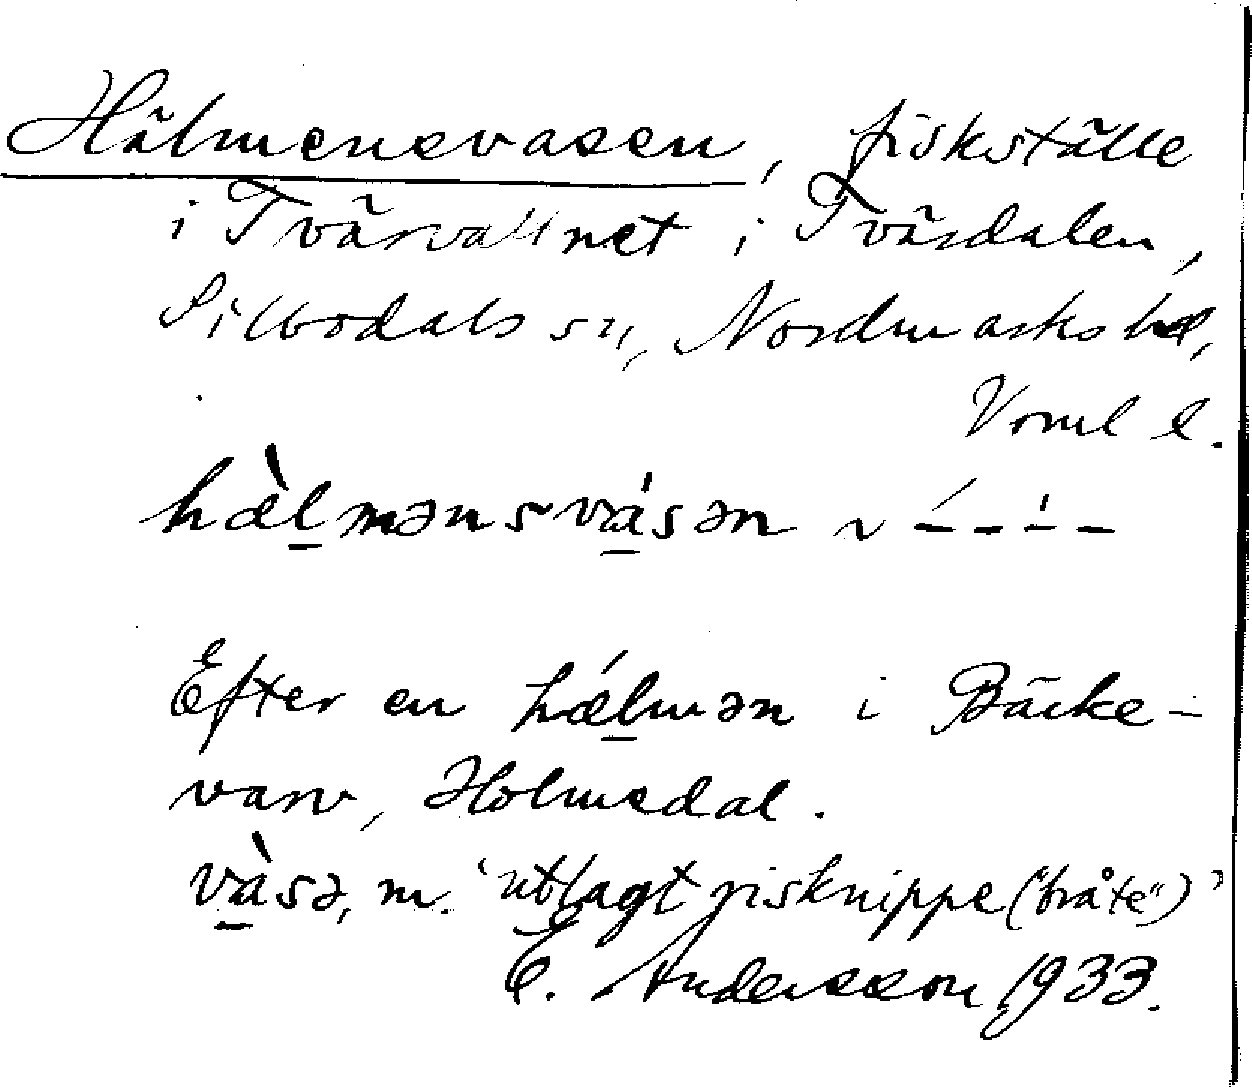 Hälmensvasen, fiskställe
i Tvärvattnet i Tvärdalen,
Silbodals sn, Nordmarks hd,
Vrml l.
hæ̀l̠mənsvà̠sən ~ – – – –
Efter en hǽl̠mən i Bäcke-
varv, Holmedal.
và̠sə, m. 'utlagt risknippe ("bråte")'
E. Andersson 1933.